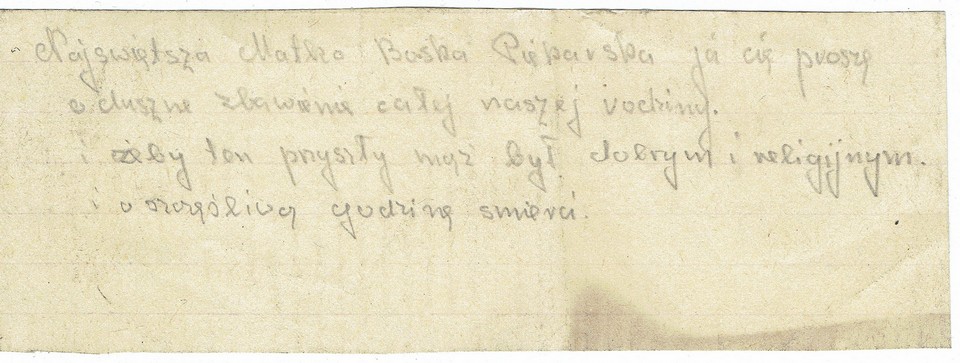 Najświętsza Matko Boska Piekarska ja cię proszę
o duszne zbawienie całej naszej rodziny.
i żeby ten przyszły mąż był dobrym i religijnym.
i o szczęśliwą godzinę śmierci.